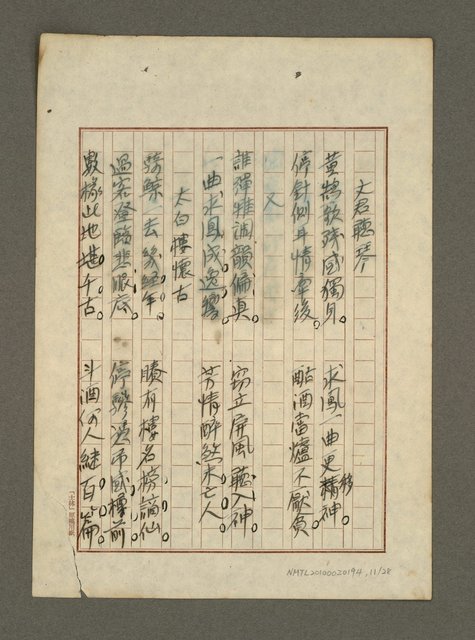 文君聽琴
黃鵠歌殊感獨身。 求鳳一曲更精神。
移
停針側耳情牽後。 酤酒當爐不厭貧
又
誰彈雅調韻偏真。 竊立屏風聽入神。
一曲求凰成逸響。 芳情醉煞未亡人。
太白樓懷古
騎鯨一去幾經年。 賸有樓名榜謫仙
過客登臨悲眼底。 停驂憑吊感樓前
數椽此地堪千古。 斗酒何人繼百篇。
NMTL20100020194, 11/28